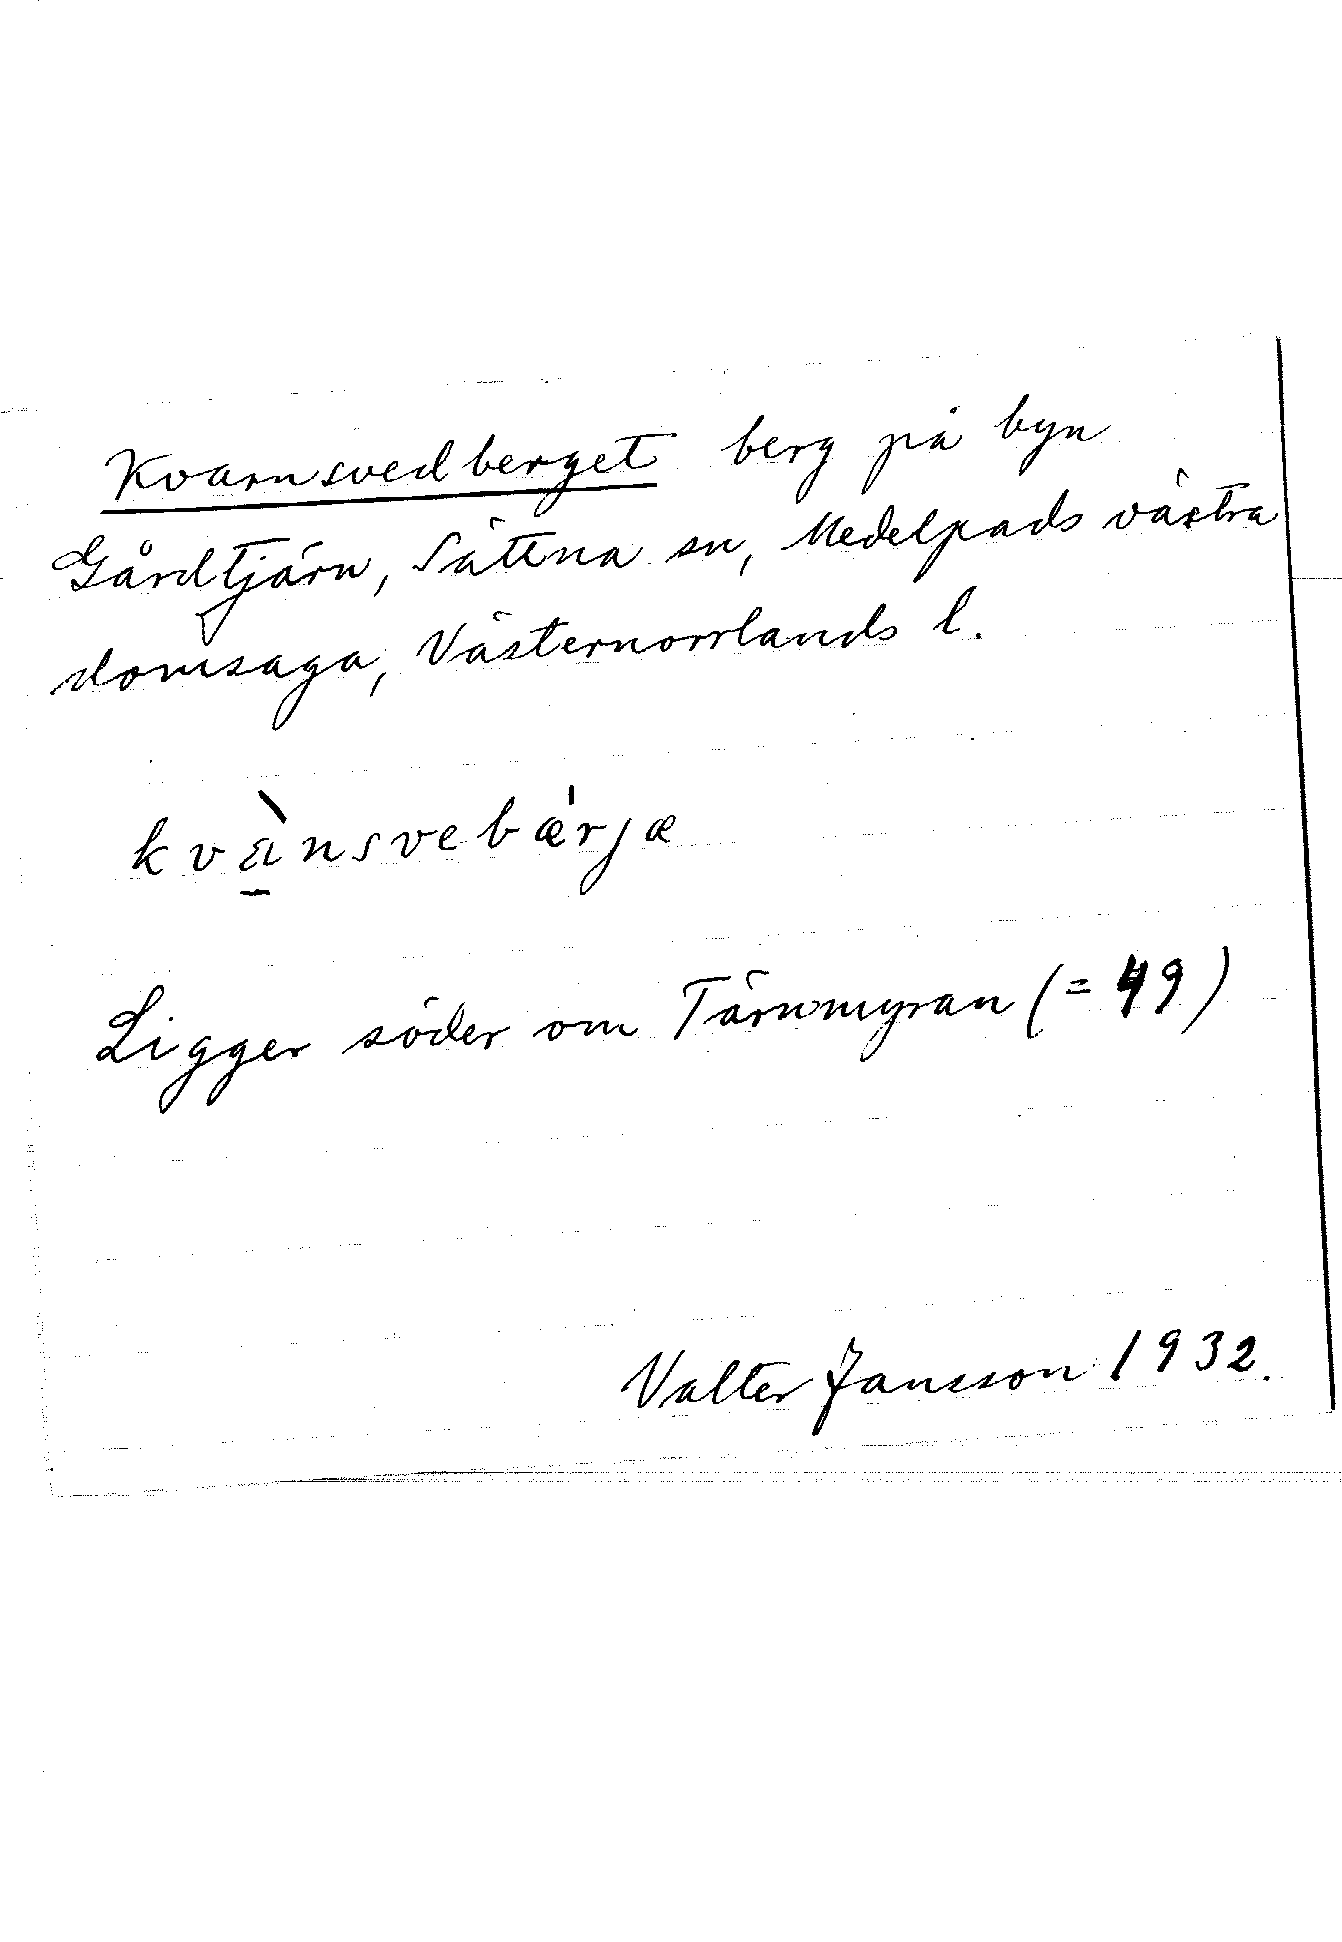 Kvarnsvedberget berg på byn
Gårdtjärn, Sättna sn, Medelpads västra
domsaga, Västernorrlands l.
kvànsvebærjæ
Ligger söder om Tärnmyran (= 49)
Valter Jansson 1932.